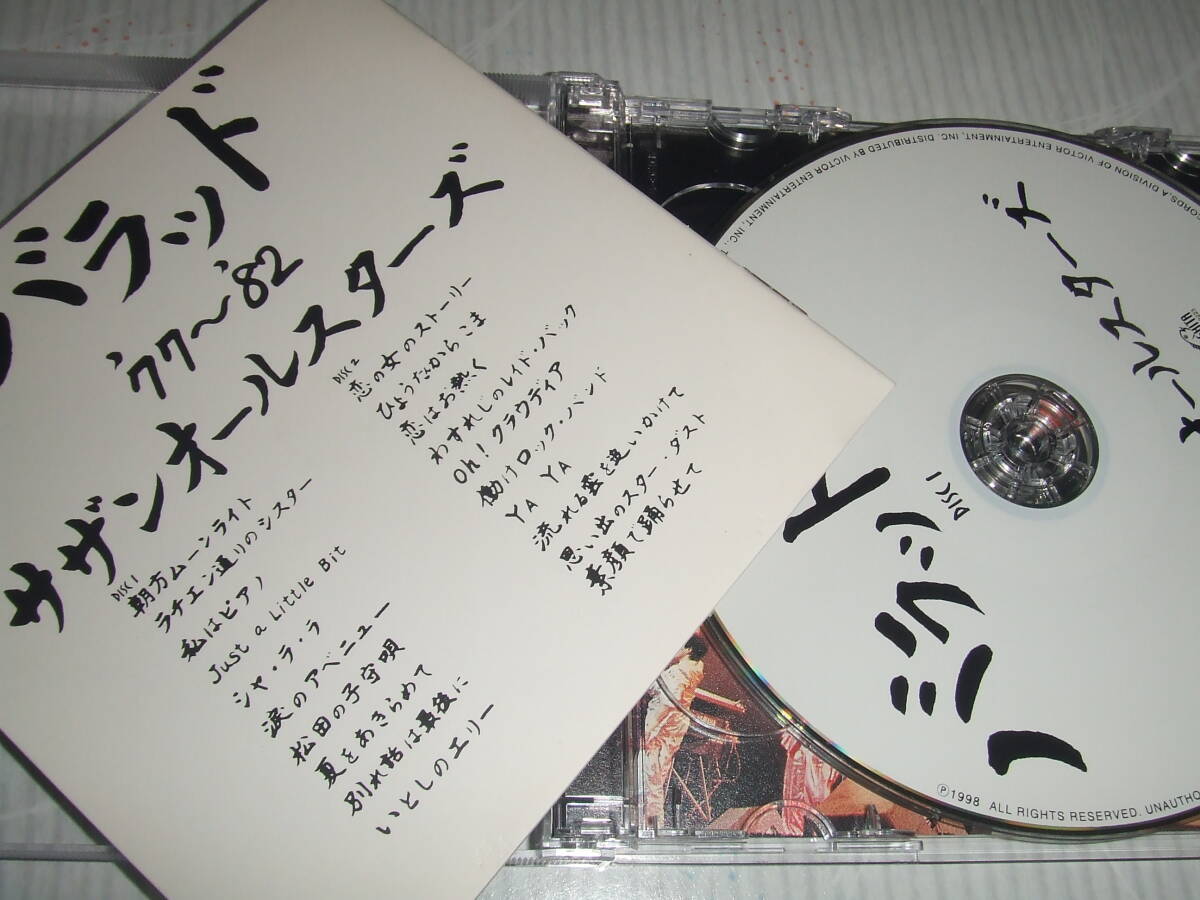 バラッド
'77〜'82
サザンオールスターズ
DISC 1
朝方ムーンライト
ラチエン通りのシスター
私はピアノ
Just a Little Bit
シャ・ラ・ラ
涙のアベニュー
松田の子守唄
夏をあきらめて
別れ話は最後に
いとしのエリー
DISC 2
恋の女のストーリー
ひょうたんからこま
恋はお熱く
わすれじのレイド・バック
Oh! クラウディア
働けロック・バンド
YA YA
流れる雲を追いかけて
思い出のスター・ダスト
素顔で踊らせて
バラッド
DISC 1
オールスターズ
A DIVISION OF VICTOR ENTERTAINMENT, INC. DISTRIBUTED BY VICTOR ENTERTAINMENT, INC.,
Ⓟ1998 ALL RIGHTS RESERVED.